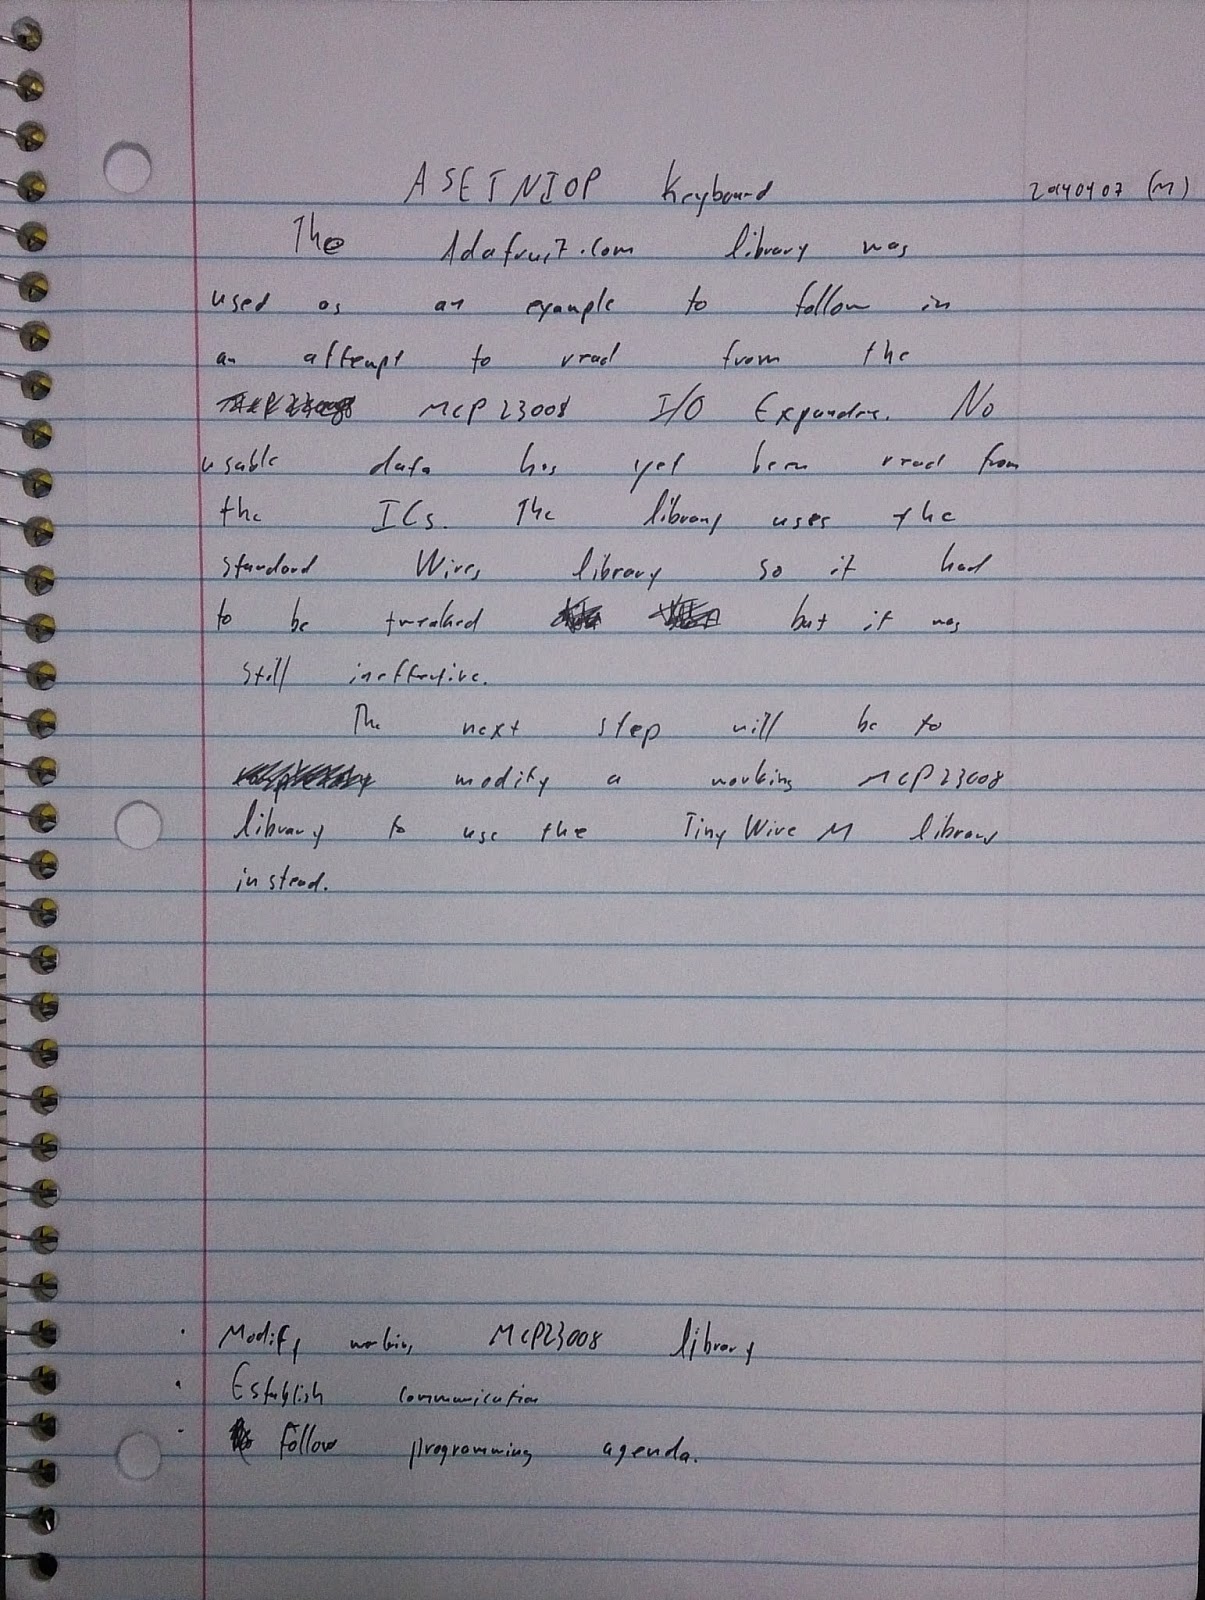 ASETNIOP Keyboard 20140407 (M)
The Adafruit.com library was
used as an example to follow in
an attempt to read from the
MCP23008 I/O Expander. No
usable data has yet been read from
the ICs. The library uses the
standard Wires library so it had
to be tweaked but it was
still ineffective.
The next step will be to
modify a working MCP23008
library to use the Tiny Wire M library
instead.
· Modify working MCP23008 library
· Establish communication
· Follow programming agenda.